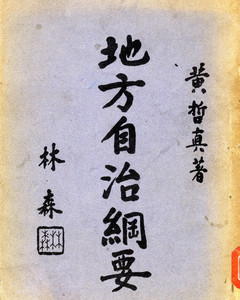 黄哲真著
地方自治綱要
林森